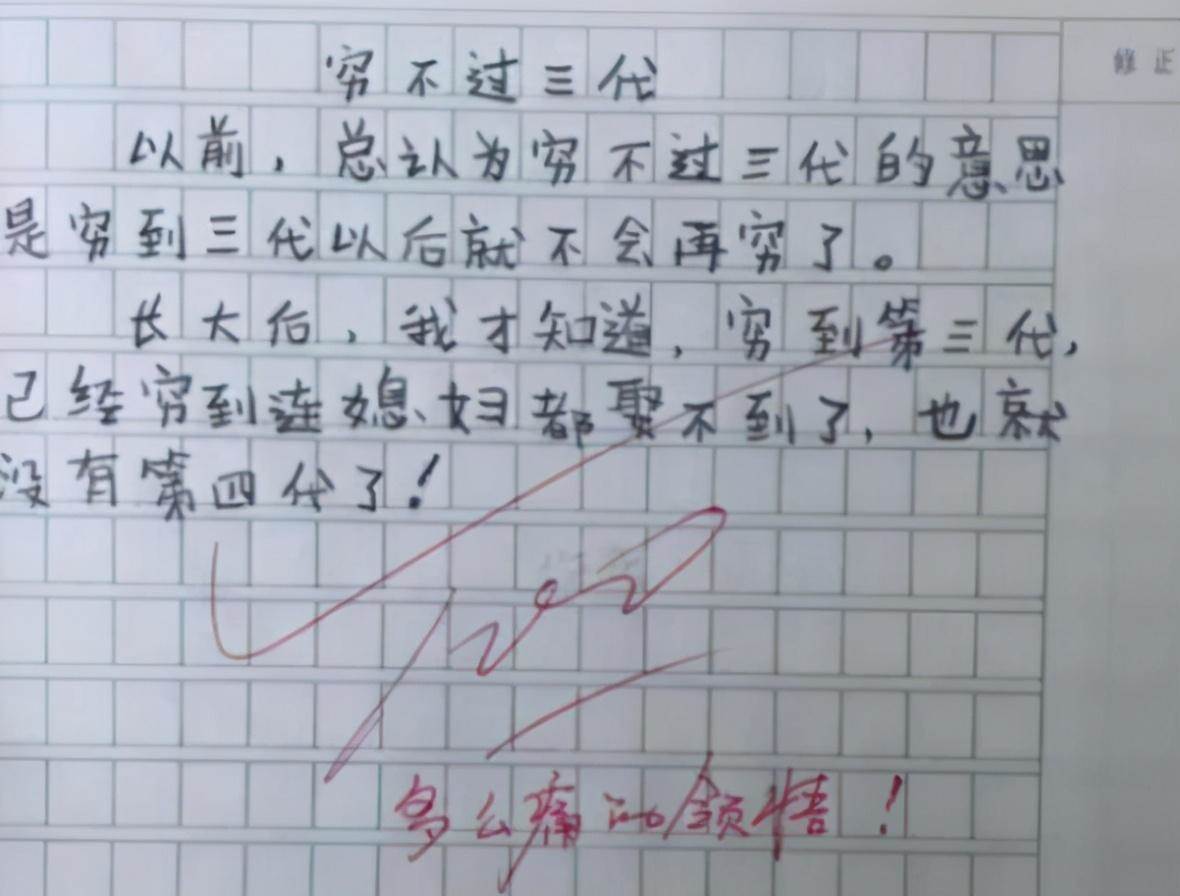 修正
穷不过三代
以前，总认为穷不过三代的意思
是穷到三代以后就不会再穷了。
长大后，我才知道，穷到第三代，
已经穷到连媳妇都娶不到了，也就
没有第四代了！
多么痛的领悟！